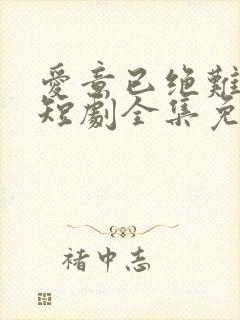 爱意已绝难
短剧全集免
褚中志